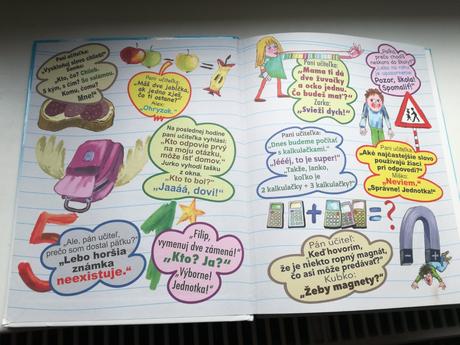 Pani učiteľka:
„Vyskloňuj slovo chlieb!“
Samko:
„Kto, čo? Chlieb.
S kým, s čím? So salámou.
Komu, čomu?
Mne!“
Pani učiteľka:
„Máš dve jabĺčka,
ak jedno zješ,
čo ti ostane?“
Alex:
„Ohryzok.“
Na poslednej hodine
pani učiteľka vyhlási:
„Kto odpovie prvý
na moju otázku,
môže ísť domov.“
Jurko vyhodí tašku
z okna.
„Kto to bol?“
„Jaaáá, dovi!“
5
„Ale, pán učiteľ,
prečo som dostal päťku?“
„Lebo horšia
známka
neexistuje.“
1*
„Filip,
vymenuj dve zámená!“
„Kto? Ja?“
„Výborne!
Jednotka!“
Pani učiteľka:
„Mama ti dá
dve žuvačky
a ocko jednu.
Čo budeš mať?“
Zorka:
„Svieži dych!“
prečo chodíš
neskoro do školy?“
Pozor, škola!
Spomaliť!“
Pani učiteľka:
„Dnes budeme počítať
s kalkulačkami.“
„Jééej, to je super!“
„Takže, Janko,
koľko je
2 kalkulačky + 3 kalkulačky?“
Pani učiteľka:
„Aké najčastejšie slovo
používajú žiaci
pri odpovedi?“
Miško:
„Neviem.“
„Správne! Jednotka!“
+ = ?
Pán učiteľ:
„Keď hovorím,
že je niekto ropný magnát,
čo asi môže predávať?“
Kubko:
„Žeby magnety?“